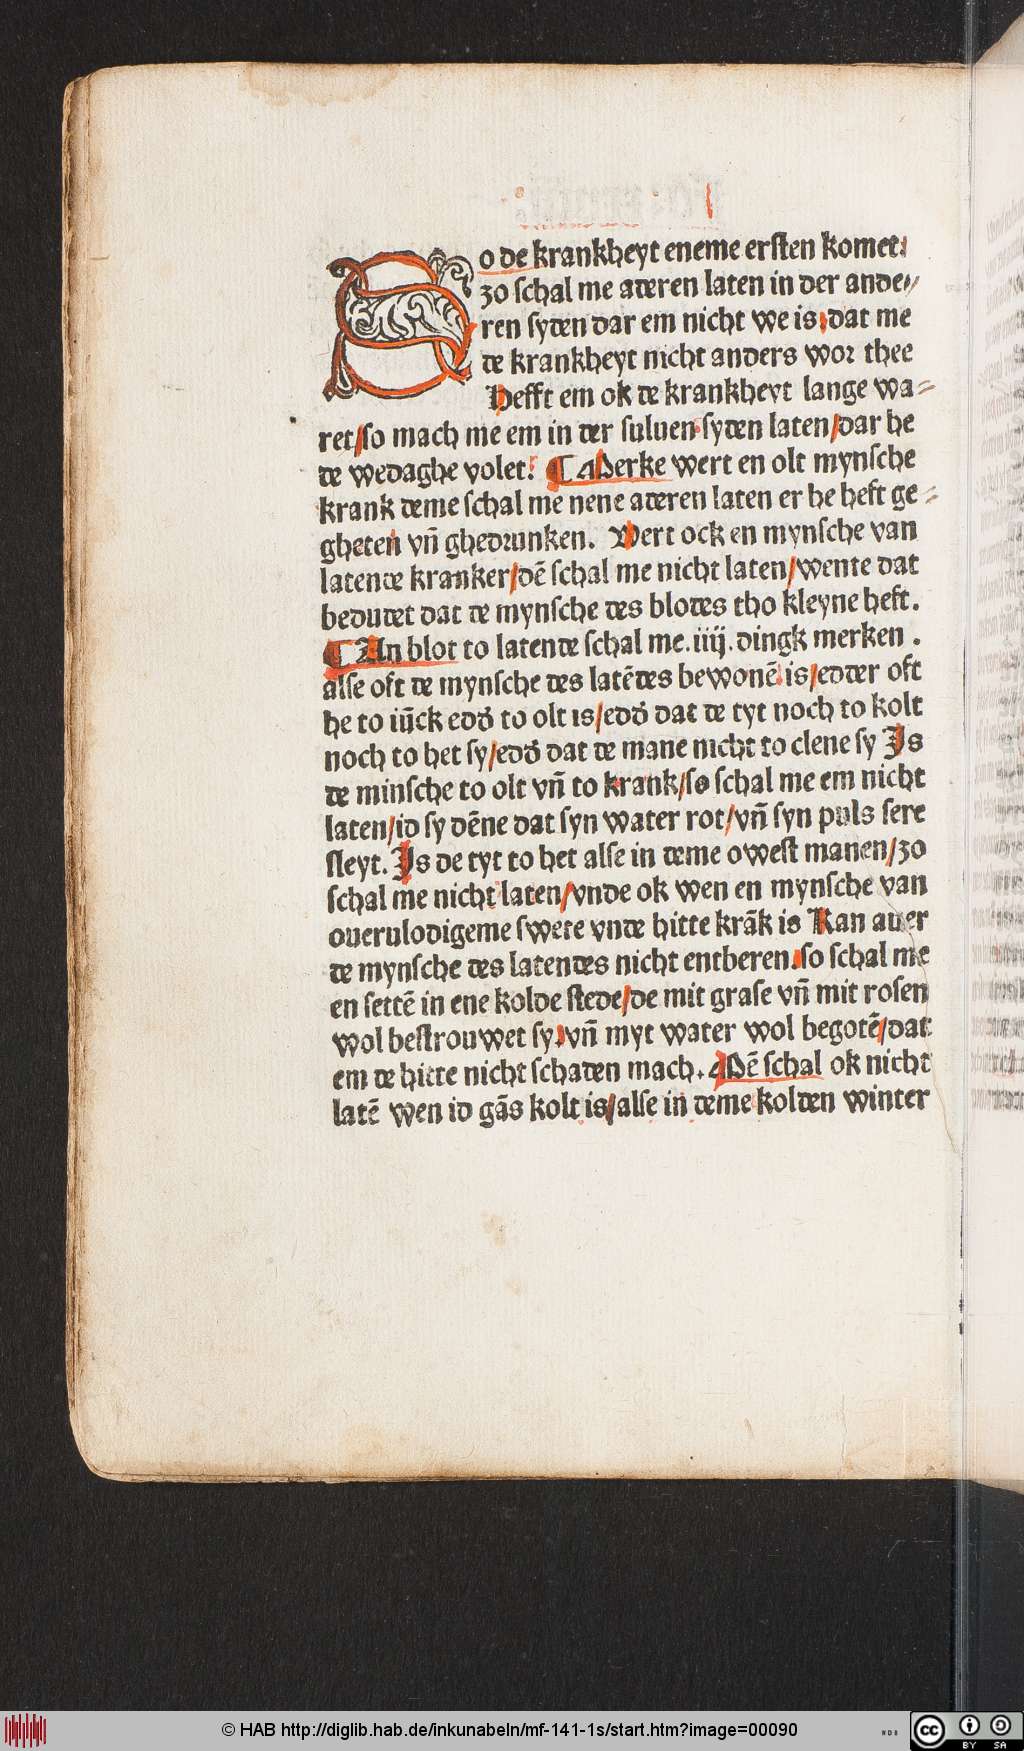 So de krankheyt eneme ersten komet:
zo schal me aderen laten in der ande⸗
ren syden dar em nicht we is, dat me
de krankheyt nicht anders wor thee
Hefft em ok de krankheyt lange wa⸗
ret/so mach me em in der suluen syden laten/dar he
de wedaghe volet. ¶ Merke wert en olt mynsche
krank deme schal me nene aderen laten er he heft ge⸗
gheten vn̄ ghedrunken. Wert ock en mynsche van
latende kranker/dē schal me nicht laten/wente dat
bedudet dat de mynsche des blodes tho kleyne heft.
¶ An blot to latende schal me .iiij. dingk merken .
alse oft de mynsche des latēdes bewonē is/edder oft
he to iūck edd̕ to olt is/edd̕ dat de tyt noch to kolt
noch to het sy/edd̕ dat de mane nicht to clene sy Is
de minsche to olt vn̄ to krank/so schal me em nicht
laten/id sy dēne dat syn water rot/vn̄ syn puls sere
sleyt. Is de tyt to het alse in deme owest manen/zo
schal me nicht laten/vnde ok wen en mynsche van
ouerulodigeme swete vnde hitte krāk is Kan auer
de mynsche des latendes nicht entberen.so schal me
en settē in ene kolde stede/de mit grase vn̄ mit rosen
wol bestrouwet sy.vn̄ myt water wol begotē/dat
em de hitte nicht schaden mach. Mē schal ok nicht
latē wen id gās kolt is/alse in deme kolden winter
© HAB http://diglib.hab.de/inkunabeln/mf-141-1s/start.htm?image=00090
WDB
cc BY SA